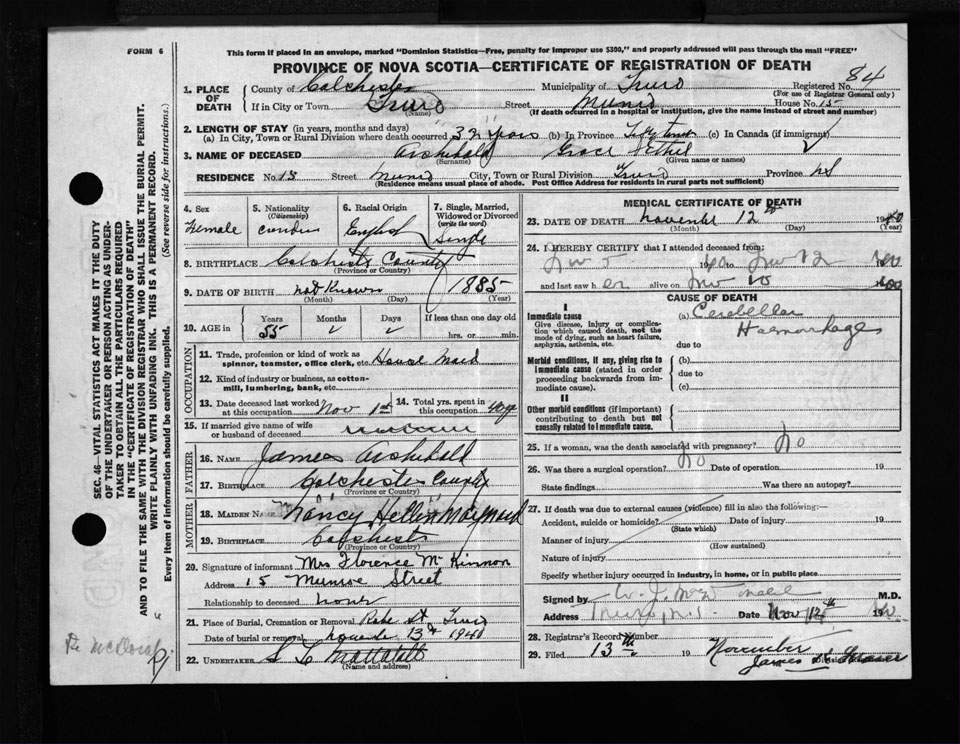 FORM 6
This form if placed in an envelope, marked "Dominion Statistics—Free, penalty for improper use $300," and properly addressed will pass through the mail "FREE"
PROVINCE OF NOVA SCOTIA—CERTIFICATE OF REGISTRATION OF DEATH
1. PLACE OF DEATH
County of Colchester Municipality of Truro Registered No. 84
(For use of Registrar General only)
If in City or Town Truro Street Munro House No. 15
(Name) (If death occurred in a hospital or institution, give the name instead of street and number)
2. LENGTH OF STAY (in years, months and days)
(a) In City, Town or Rural Division where death occurred 39 years (b) In Province (c) In Canada (if immigrant)
3. NAME OF DECEASED Archibald Grace Ethel
(Surname) (Given name or names)
RESIDENCE No. 15 Street Munro City, Town or Rural Division Truro Province NS
(Residence means usual place of abode. Post Office Address for residents in rural parts not sufficient)
4. Sex
Female
5. Nationality
(Citizenship)
6. Racial Origin
English
7. Single, Married, Widowed or Divorced
(write the word)
Single
8. BIRTHPLACE Colchester County
(Province or Country)
9. DATE OF BIRTH not Known 1885
(Month) (Day) (Year)
10. AGE in
Years
55
Months
Days
If less than one day old
hrs. or min.
OCCUPATION
11. Trade, profession or kind of work as spinner, teamster, office clerk, etc. House Maid
12. Kind of industry or business, as cotton-mill, lumbering, bank, etc.
13. Date deceased last worked at this occupation Nov 1st
14. Total yrs. spent in this occupation 40 yr
15. If married give name of wife or husband of deceased
FATHER
16. NAME James Archibald
17. BIRTHPLACE Colchester County
(Province or Country)
MOTHER
18. MAIDEN NAME Nancy Hellen Maynard
19. BIRTHPLACE Colchester
(Province or Country)
20. Signature of informant Mrs Florence McKinnon
Address 15 Munroe Street
Relationship to deceased none
21. Place of Burial, Cremation or Removal Robie St. Truro
Date of burial or removal 13th 1940
22. UNDERTAKER S C Mattatall
(Name and address)
MEDICAL CERTIFICATE OF DEATH
23. DATE OF DEATH November 12th 1940
(Month) (Day) (Year)
24. I HEREBY CERTIFY that I attended deceased from:
Nov 5 1940 to Nov 12 1940
and last saw her alive on Nov 10 1940
CAUSE OF DEATH
I
Immediate cause
Give disease, injury or complication which caused death, not the mode of dying, such as heart failure, asphyxia, asthenia, etc.
(a) Cerebellar Haemorrhage
due to
Morbid conditions, if any, giving rise to immediate cause (stated in order proceeding backwards from immediate cause).
(b)
due to
(c)
II
Other morbid conditions (if important) contributing to death but not causally related to immediate cause.
25. If a woman, was the death associated with pregnancy? No
26. Was there a surgical operation? No Date of operation 19
State findings Was there an autopsy?
27. If death was due to external causes (violence) fill in also the following:—
Accident, suicide or homicide? Date of injury 19
(State which)
Manner of injury
(How sustained)
Nature of injury
Specify whether injury occurred in industry, in home, or in public place
Signed by M.D.
Address Truro, N.S. Date Nov 12th 1940
28. Registrar's Record Number
29. Filed 13th 19 November
James
SEC. 46—VITAL STATISTICS ACT MAKES IT THE DUTY OF THE UNDERTAKER OR PERSON ACTING AS UNDERTAKER TO OBTAIN ALL THE PARTICULARS REQUIRED IN THE "CERTIFICATE OF REGISTRATION OF DEATH" AND TO FILE THE SAME WITH THE DIVISION REGISTRAR WHO SHALL ISSUE THE BURIAL PERMIT.
WRITE PLAINLY WITH UNFADING INK. THIS IS A PERMANENT RECORD.
Every item of information should be carefully supplied. (See reverse side for instructions.)